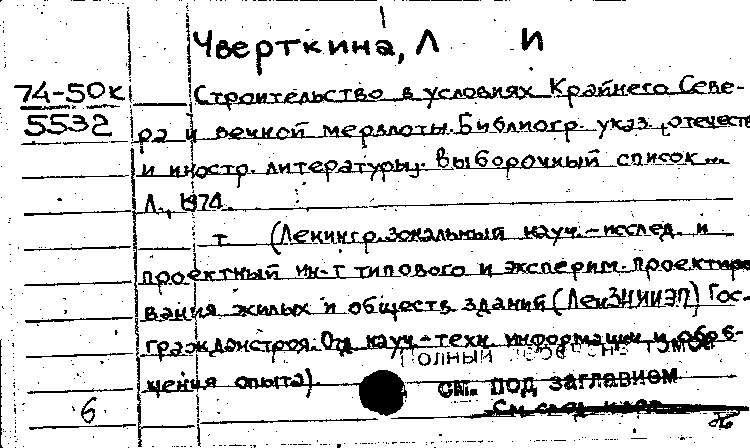 Чверткина, Л И
74-50к
5532
Строительство в условиях Крайнего Севе-
ра и вечной мерзлоты. Библиогр. указ. [отечеств.
и иностр. литературы]. Выборочный список...
Л., 1974.
т (Ленингр. зональный науч.-исслед. и
проектный ин-т типового и эксперим. проектиро
вания жилых и обществ. зданий (ЛенЗНИИЭП) Гос-
гражданстроя. Отд. науч.-техн. информации и обоб-
щения опыта)
ПОЛНЫЙ ТОМОВ
СМ. ПОД ЗАГЛАВИЕМ
См. след. карт.
6